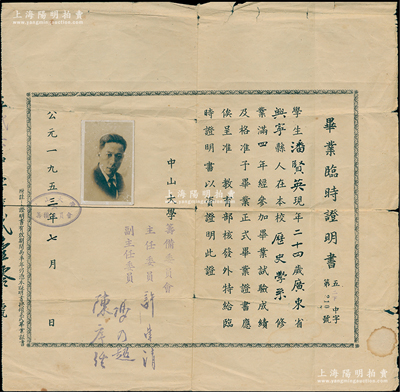 上海陽明拍賣
畢業臨時證明書
五 中字
第 號
學生潘賢英現年二十四歲廣東省
興寧縣人在本校歷史學系修
業滿四年經參加畢業試驗成績
及格准予畢業正式畢業證書應
俟呈准教育部核發外特給臨
時證明書以資證明此證
中山大學籌備委員會
主任委員 許崇清
副主任委員 馮乃超
陳序經
公元一九五三年七月 日
上海陽明拍賣